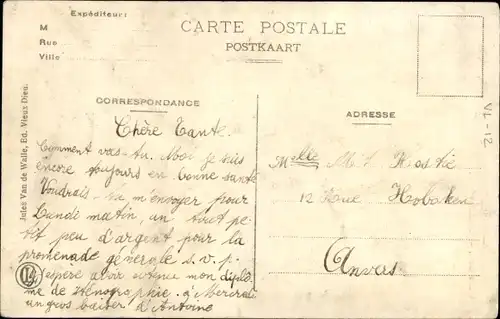 Expéditeur:
M
Rue
Ville
CARTE POSTALE
POSTKAART
CORRESPONDANCE
Chère Tante.
Comment vas-tu. Moi je suis
encore toujours en bonne santé
Voudrais-tu m'envoyer pour
Lundi matin, un tout pe-
tit peu d'argent pour la
promenade générole s.v.p.
J'espère avoir obtenu mon diplô-
me de sténographie. à Mercredi
un gros baiser d'Antoine
ADRESSE
Melle M.
12 Rue Hoboken
Anvers
Jules Van de Walle, Ed. Vieux Dieu.